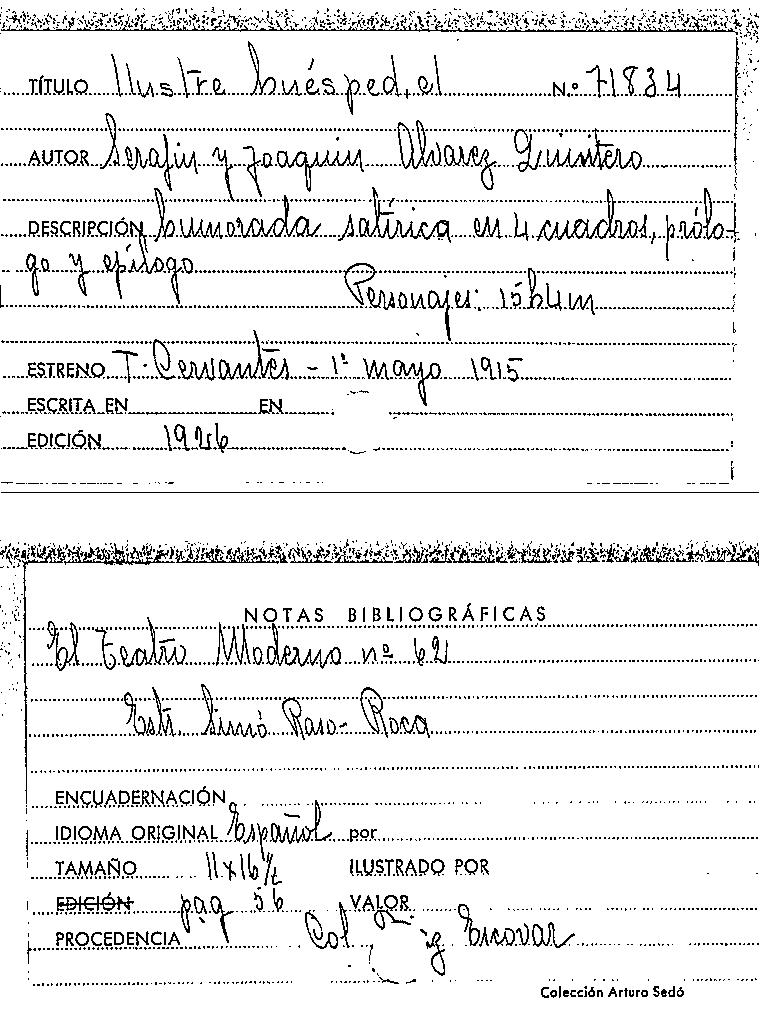 TÍTULO Ilustre huésped, el N.º 71834
AUTOR Serafin y Joaquin Alvarez Quintero
DESCRIPCIÓN humorada satírica en 4 cuadros, prólo-
go y epílogo
Personajes: 15h4m
ESTRENO T. Cervantes - 1º mayo 1915
ESCRITA EN EN
EDICIÓN 1926
NOTAS BIBLIOGRÁFICAS
El Teatro Moderno nº 62
Estr. Simó Raso - Roca
ENCUADERNACIÓN
IDIOMA ORIGINAL Español por
TAMAÑO 11x16½ ILUSTRADO POR
EDICIÓN pag 56 VALOR
PROCEDENCIA Col Escovar
Colección Arturo Sedó